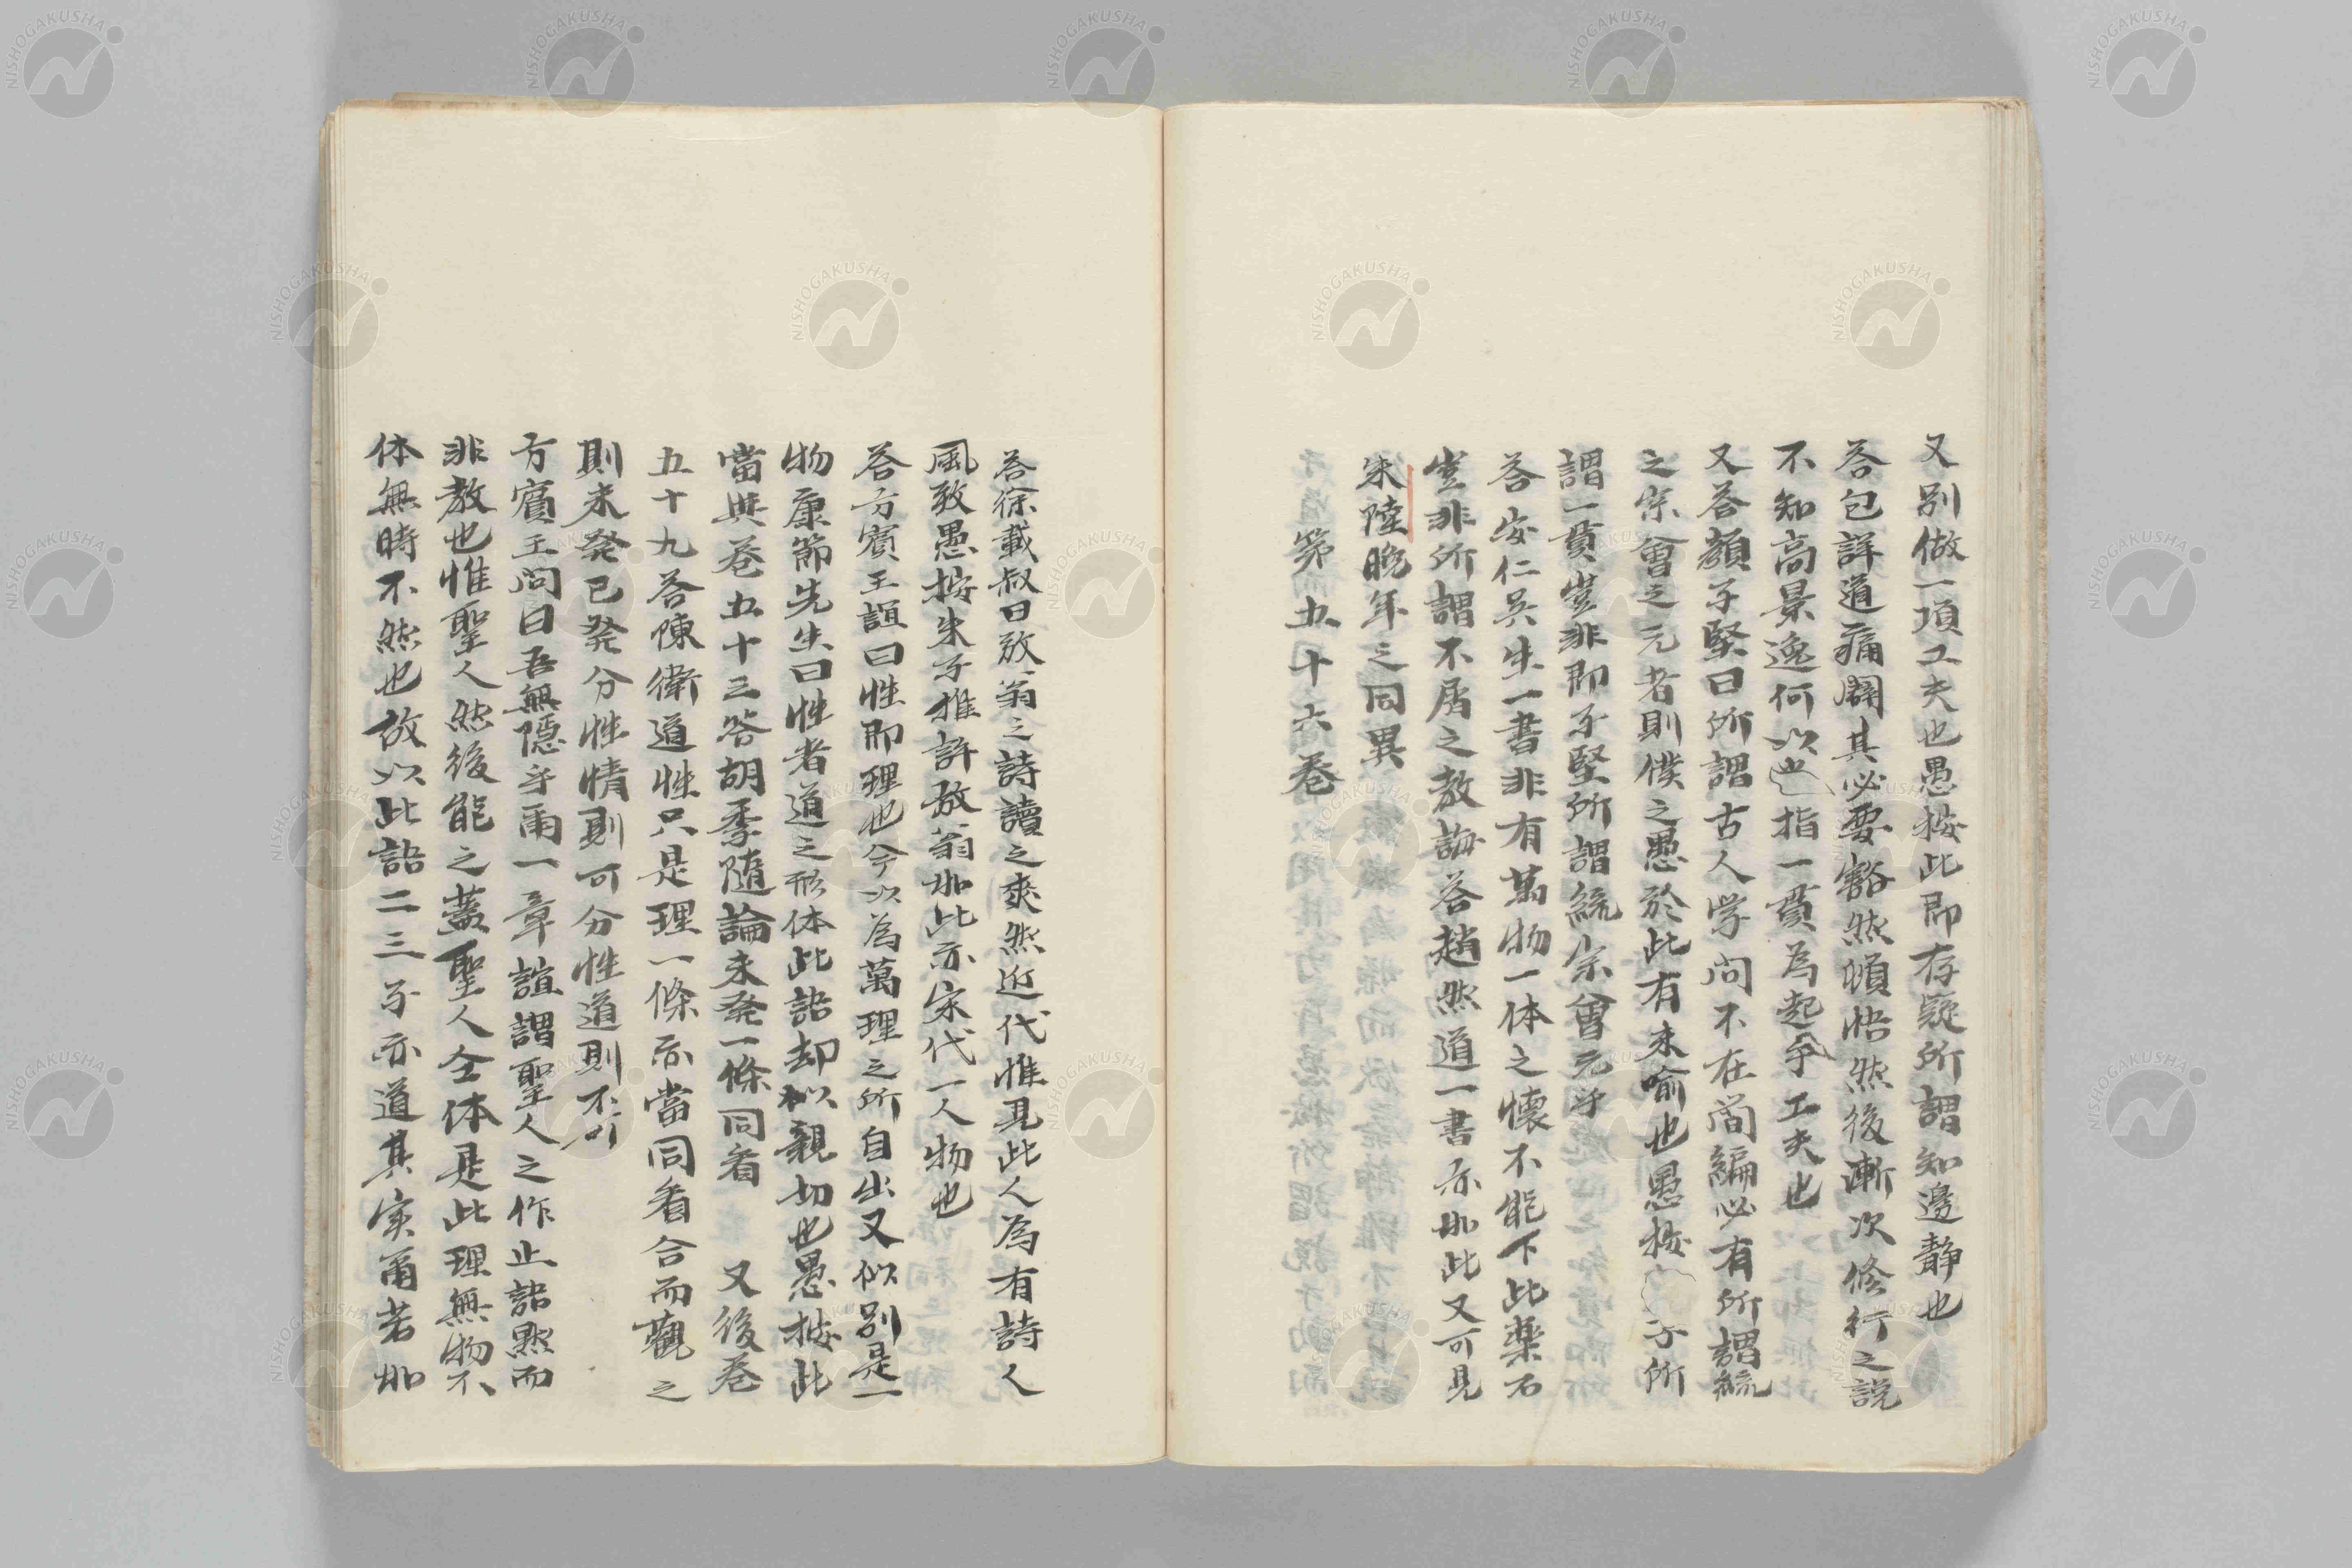 又別做一項工夫也愚按此即存疑所謂知邊静也
答包詳道痛闢其必要豁然頓悟然後漸次修行之説
不知高景逸何以也指一貫為起手工夫也
又答顔子堅曰所謂古人学問不在簡編必有所謂統
之宗會之元者則僕之愚於此有未喻也愚按子所
謂一貫豈非即子堅所謂統宗會元乎
答安仁呉生一書非有萬物一体之懐不能下此薬石
豈非所謂不屑之教誨答趙然道一書亦如此又可見
朱陸晩年之同異
第五十六卷
答徐載叔曰放翁之詩讀之爽然近代惟見此人為有詩人
風致愚按朱子推許放翁如此亦宋代一人物也
答方賓王誼曰性即理也今以為萬理之所自出又似別是一
物康節先生曰性者道之形体此語却似親切也愚按此
當與卷五十三答胡季隨論未発一條同看 又後卷
五十九答陳衛道性只是理一條亦當同看合而觀之
則未発已発分性情則可分性道則不可
方賓王問曰吾無隠乎爾一章誼謂聖人之作止語黙而
非教也惟聖人然後能之蓋聖人全体是此理無物不
体無時不然也故以此語二三子亦道其実爾若如
NISHOGAKUSHA